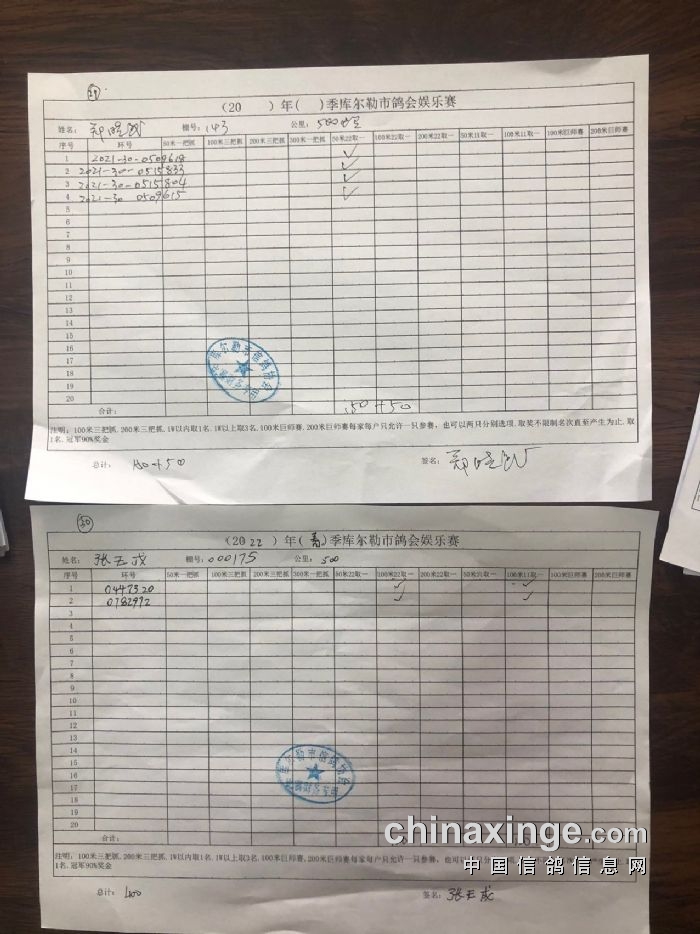 29
(20 )年( )季库尔勒市鸽会娱乐赛
姓名: 棚号: 公里: 500
序号 环号 50米一把抓 100米三把抓 200米三把抓 300米一把抓 50米22取一 100米22取一 200米22取一 50米11取一 100米11取一 100米巨师赛 200米巨师赛
1 2021-30-0509618 ✓
2 2021-30-0515833 ✓
3 2021-30-0515804 ✓
4 2021-30 0509615 ✓
5
6
7
8
9
10
11
12
13
14
15
16
17
18
19
20
库尔勒市信鸽协会
合计: 50+50
注明:100米三把抓.200米三把抓.1W以内取1名.1W以上取3名.100米巨师赛.200米巨师赛每家每户只允许一只参赛,也可以两只分别选项.取奖不限制名次直至产生为止.取
1名.冠军90%奖金
总计: 签名:
30
(2022)年(春)季库尔勒市鸽会娱乐赛
姓名: 张玉成 棚号: 000175 公里: 500
序号 环号 50米一把抓 100米三把抓 200米三把抓 300米一把抓 50米22取一 100米22取一 200米22取一 50米11取一 100米11取一 100米巨师赛 200米巨师赛
1 0447320 ✓ ✓
2 0782972 ✓ ✓
3
4
5
6
7
8
9
10
11
12
13
14
15
16
17
18
19
20
库尔勒市信鸽协会
合计:
chinaxinge.com
注明:100米三把抓.200米三把抓.1W以内取1名.1W以上取3名.100米巨师赛.200米巨师赛每家每户只允许一只参赛,也可
1名.冠军90%奖金
中国信鸽信息网
总计: 400 签名: 张玉成